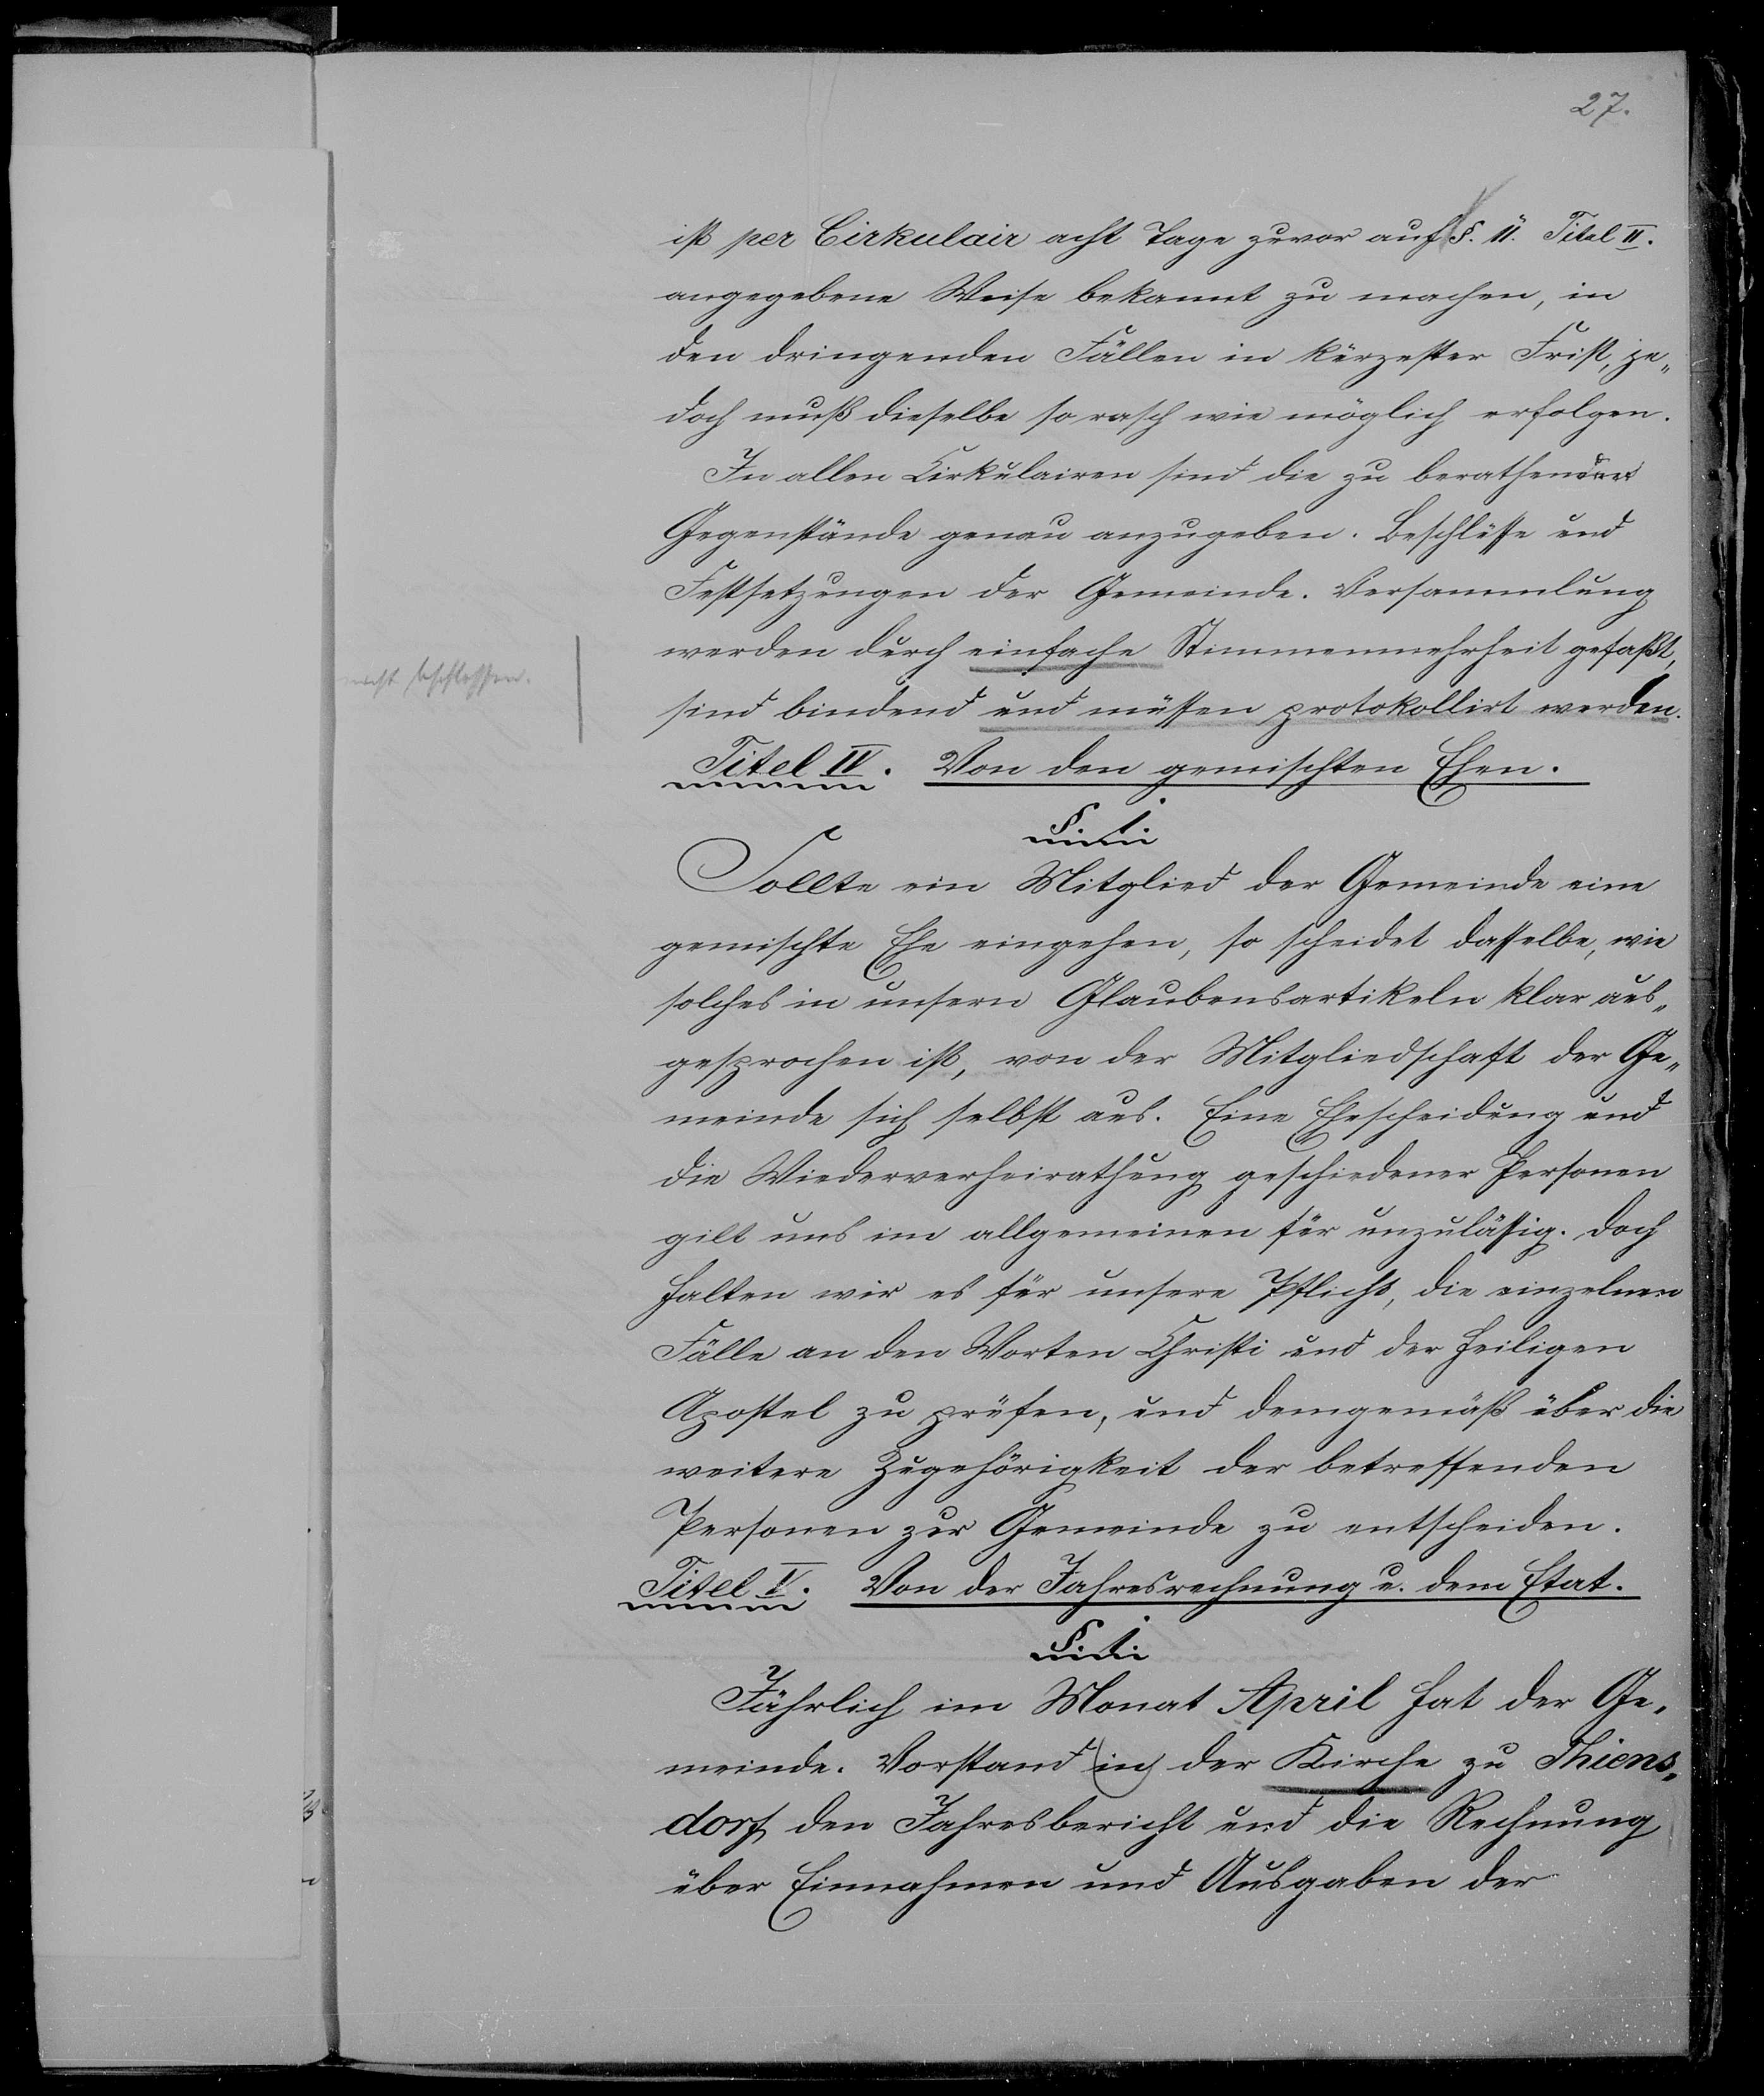 27.
ist per Cirkulair acht Tage zuvor auf §. 11. Titel II.
angegebene Weise bekannt zu machen, in
den dringenden Fällen in kürzester Frist, je„
doch muß dieselbe so rasch wie möglich erfolgen.
In allen Cirkulairen sind die zu berathenden
Gegenstände genau anzugeben. Beschlüsse und
Festsetzungen der Gemeinde. Versammlung
werden durch einfache Stimmenmehrheit gefaßt,
nicht beschlossen.
sind bindend und müssen protokollirt werden.
Titel IV. Von den gemischten Ehen.
§. 1.
Sollte ein Mitglied der Gemeinde eine
gemischte Ehe eingehen, so scheidet dasselbe, wie
solches in unsern Glaubensartikeln klar aus„
gesprochen ist, von der Mitgliedschaft der Ge„
meinde sich selbst aus. Eine Ehescheidung und
die Wiederverheirathung geschiedener Personen
gilt uns im allgemeinen für unzulässig. Doch
halten wir es für unsere Pflicht, die einzelnen
Fälle an den Worten Christi und der heiligen
Apostel zu prüfen, und demgemäß über die
weitere Zugehörigkeit der betreffenden
Personen zur Gemeinde zu entscheiden.
Titel V. Von der Jahresrechnung u. dem Etat.
§. 1.
Jährlich im Monat April hat der Ge„
meinde. Vorstand (in) der Kirche zu Thiens„
dorf den Jahresbericht und die Rechnung
über Einnahmen und Ausgaben der